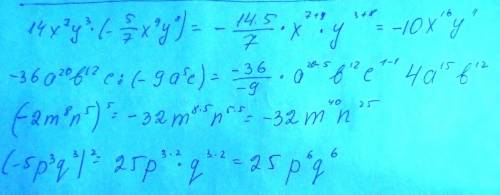 14x²y³·(-5/7x⁹y⁸) = -14·5/7·x⁷⁺⁹·y³⁺⁸ = -10x¹⁶y
-36a²⁰b¹²c:(-9a⁵c) = -36/-9·a²⁰⁻⁵b¹²c¹⁻¹ 4a¹⁵b¹²
(-2m⁸n⁵)⁵ = -32m⁸·⁵n⁵·⁵ = -32m⁴⁰n²⁵
(-5p³q³)² = 25p³·²·q³·² = 25p⁶q⁶